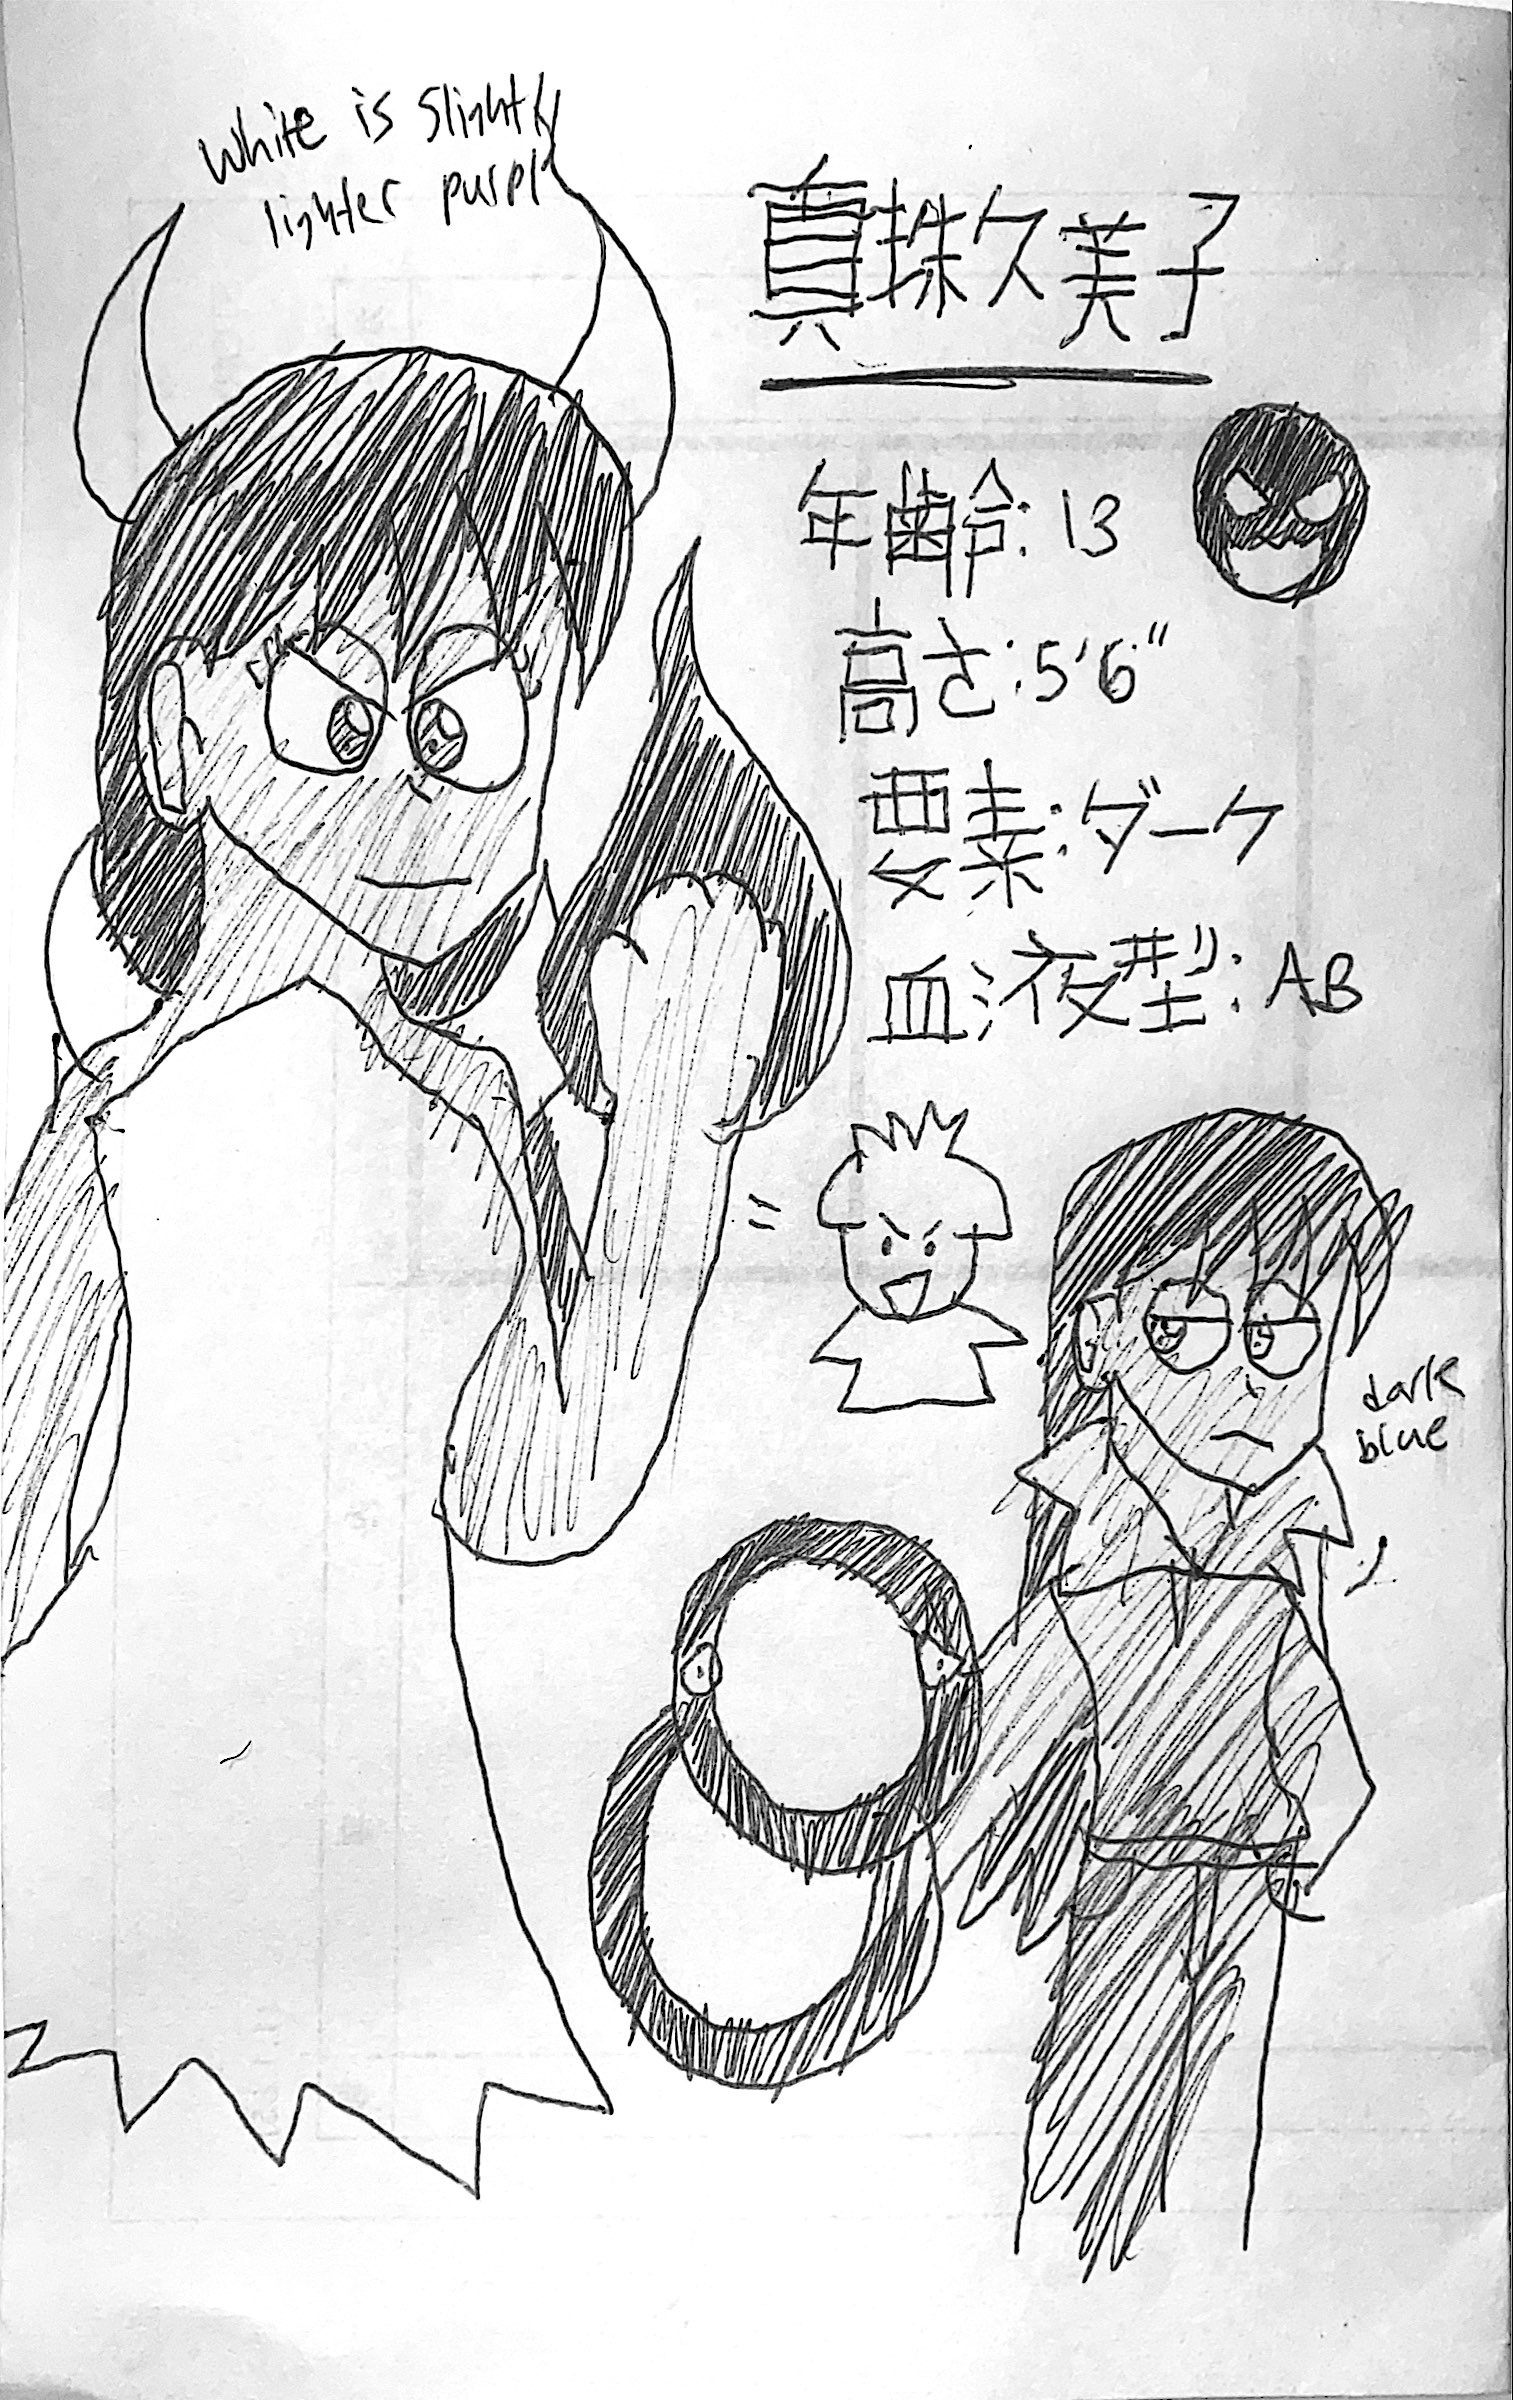 White is slightly
lighter purple
真珠久美子
年齢: 13
高さ: 5'6"
要素: ダーク
血液型: AB
=
dark
blue